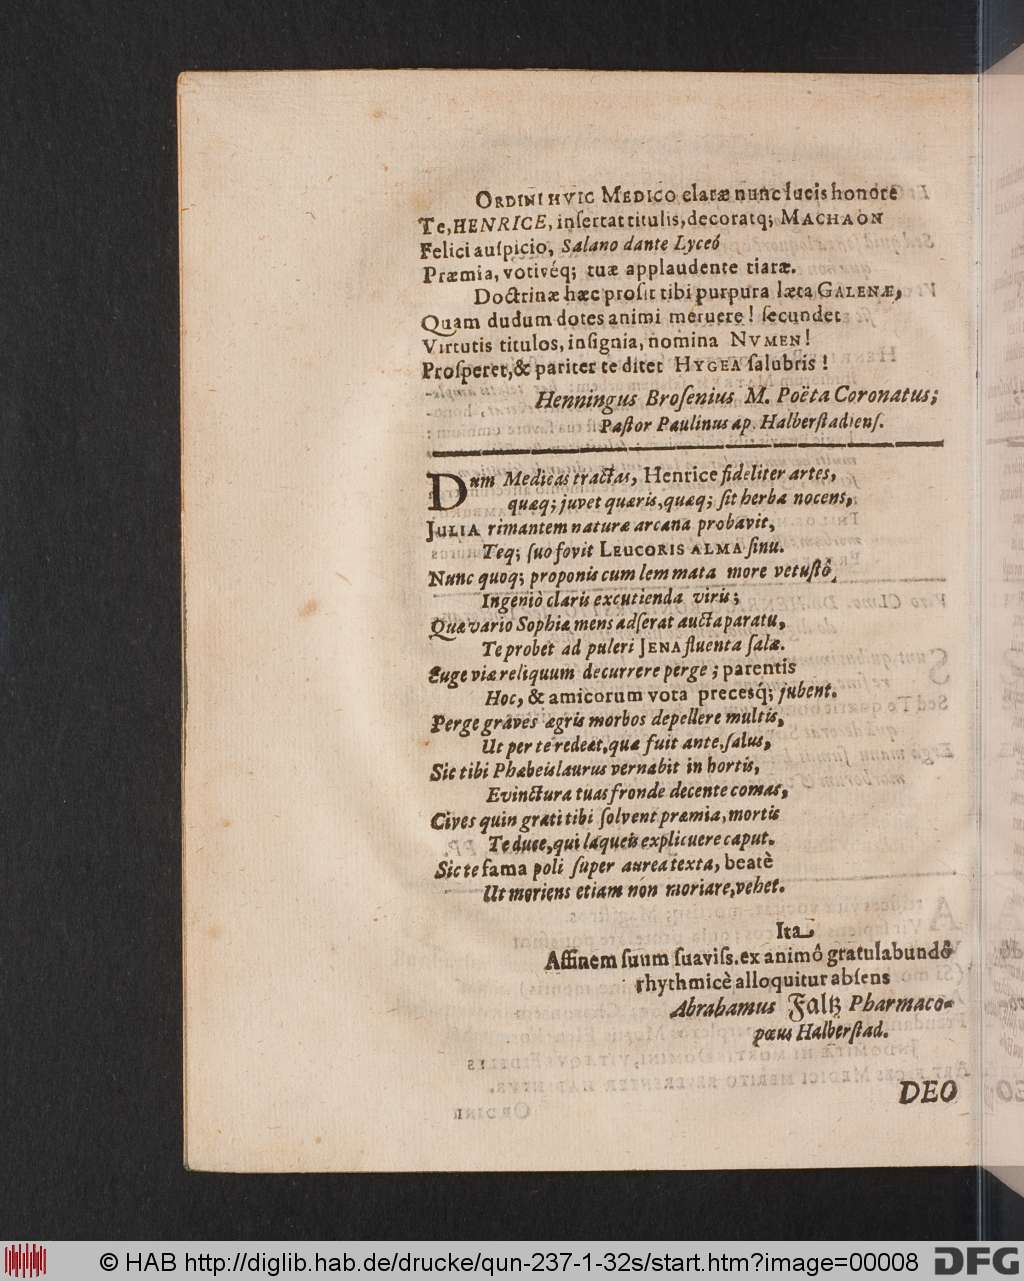 ORDINI HVIC MEDICO elatæ nunc lucis honore
Te, HENRICE, inſertat titulis, decoratq; MACHAON
Felici auſpicio, Salano dante Lyceó
Præmia, votivéq; tuæ applaudente tiaræ.
Doctrinæ hæc proſit tibi purpura læta GALENÆ,
Quam dudum dotes animi meruere! ſecundet
Virtutis titulos, inſignia, nomina NVMEN!
Proſperet, & pariter te ditet HYGEA ſalubris!
Henningus Broſenius M. Poëta Coronatus;
Paſtor Paulinus ap. Halberſtadienſ.
Dum Medicas tractas, Henrice fideliter artes,
quæq; juvet quæris, quæq; ſit herba nocens,
JULIA rimantem naturæ arcana probavit,
Teq; ſuo fovit LEUCORIS ALMA ſinu.
Nunc quoq; proponis cum lemmata more vetuſtô,
Ingeniò claris excutienda viris;
Quæ vario Sophiæ mens adſerat aucta paratu,
Te probet ad pulcri JENA fluenta ſalæ.
Euge viæ reliquum decurrere perge; parentis
Hoc, & amicorum vota precesq́; jubent.
Perge gràves ægris morbos depellere multis,
Ut per te redeat, quæ fuit ante, ſalus,
Sic tibi Phœbeis laurus vernabit in hortis,
Evinctura tuas fronde decente comas,
Cives quin grati tibi ſolvent præmia, mortis
Te duce, qui laqueis explicuere caput.
Sic te fama poli ſuper aurea texta, beatè
Ut moriens etiam non moriare, vehet.
Ita
Affinem ſuum ſuaviſs. ex animô gratulabundô
rhythmicè alloquitur abſens
Abrahamus Faltz Pharmaco-
pœus Halberſtad.
DEO
© HAB http://diglib.hab.de/drucke/qun-237-1-32s/start.htm?image=00008
DFG